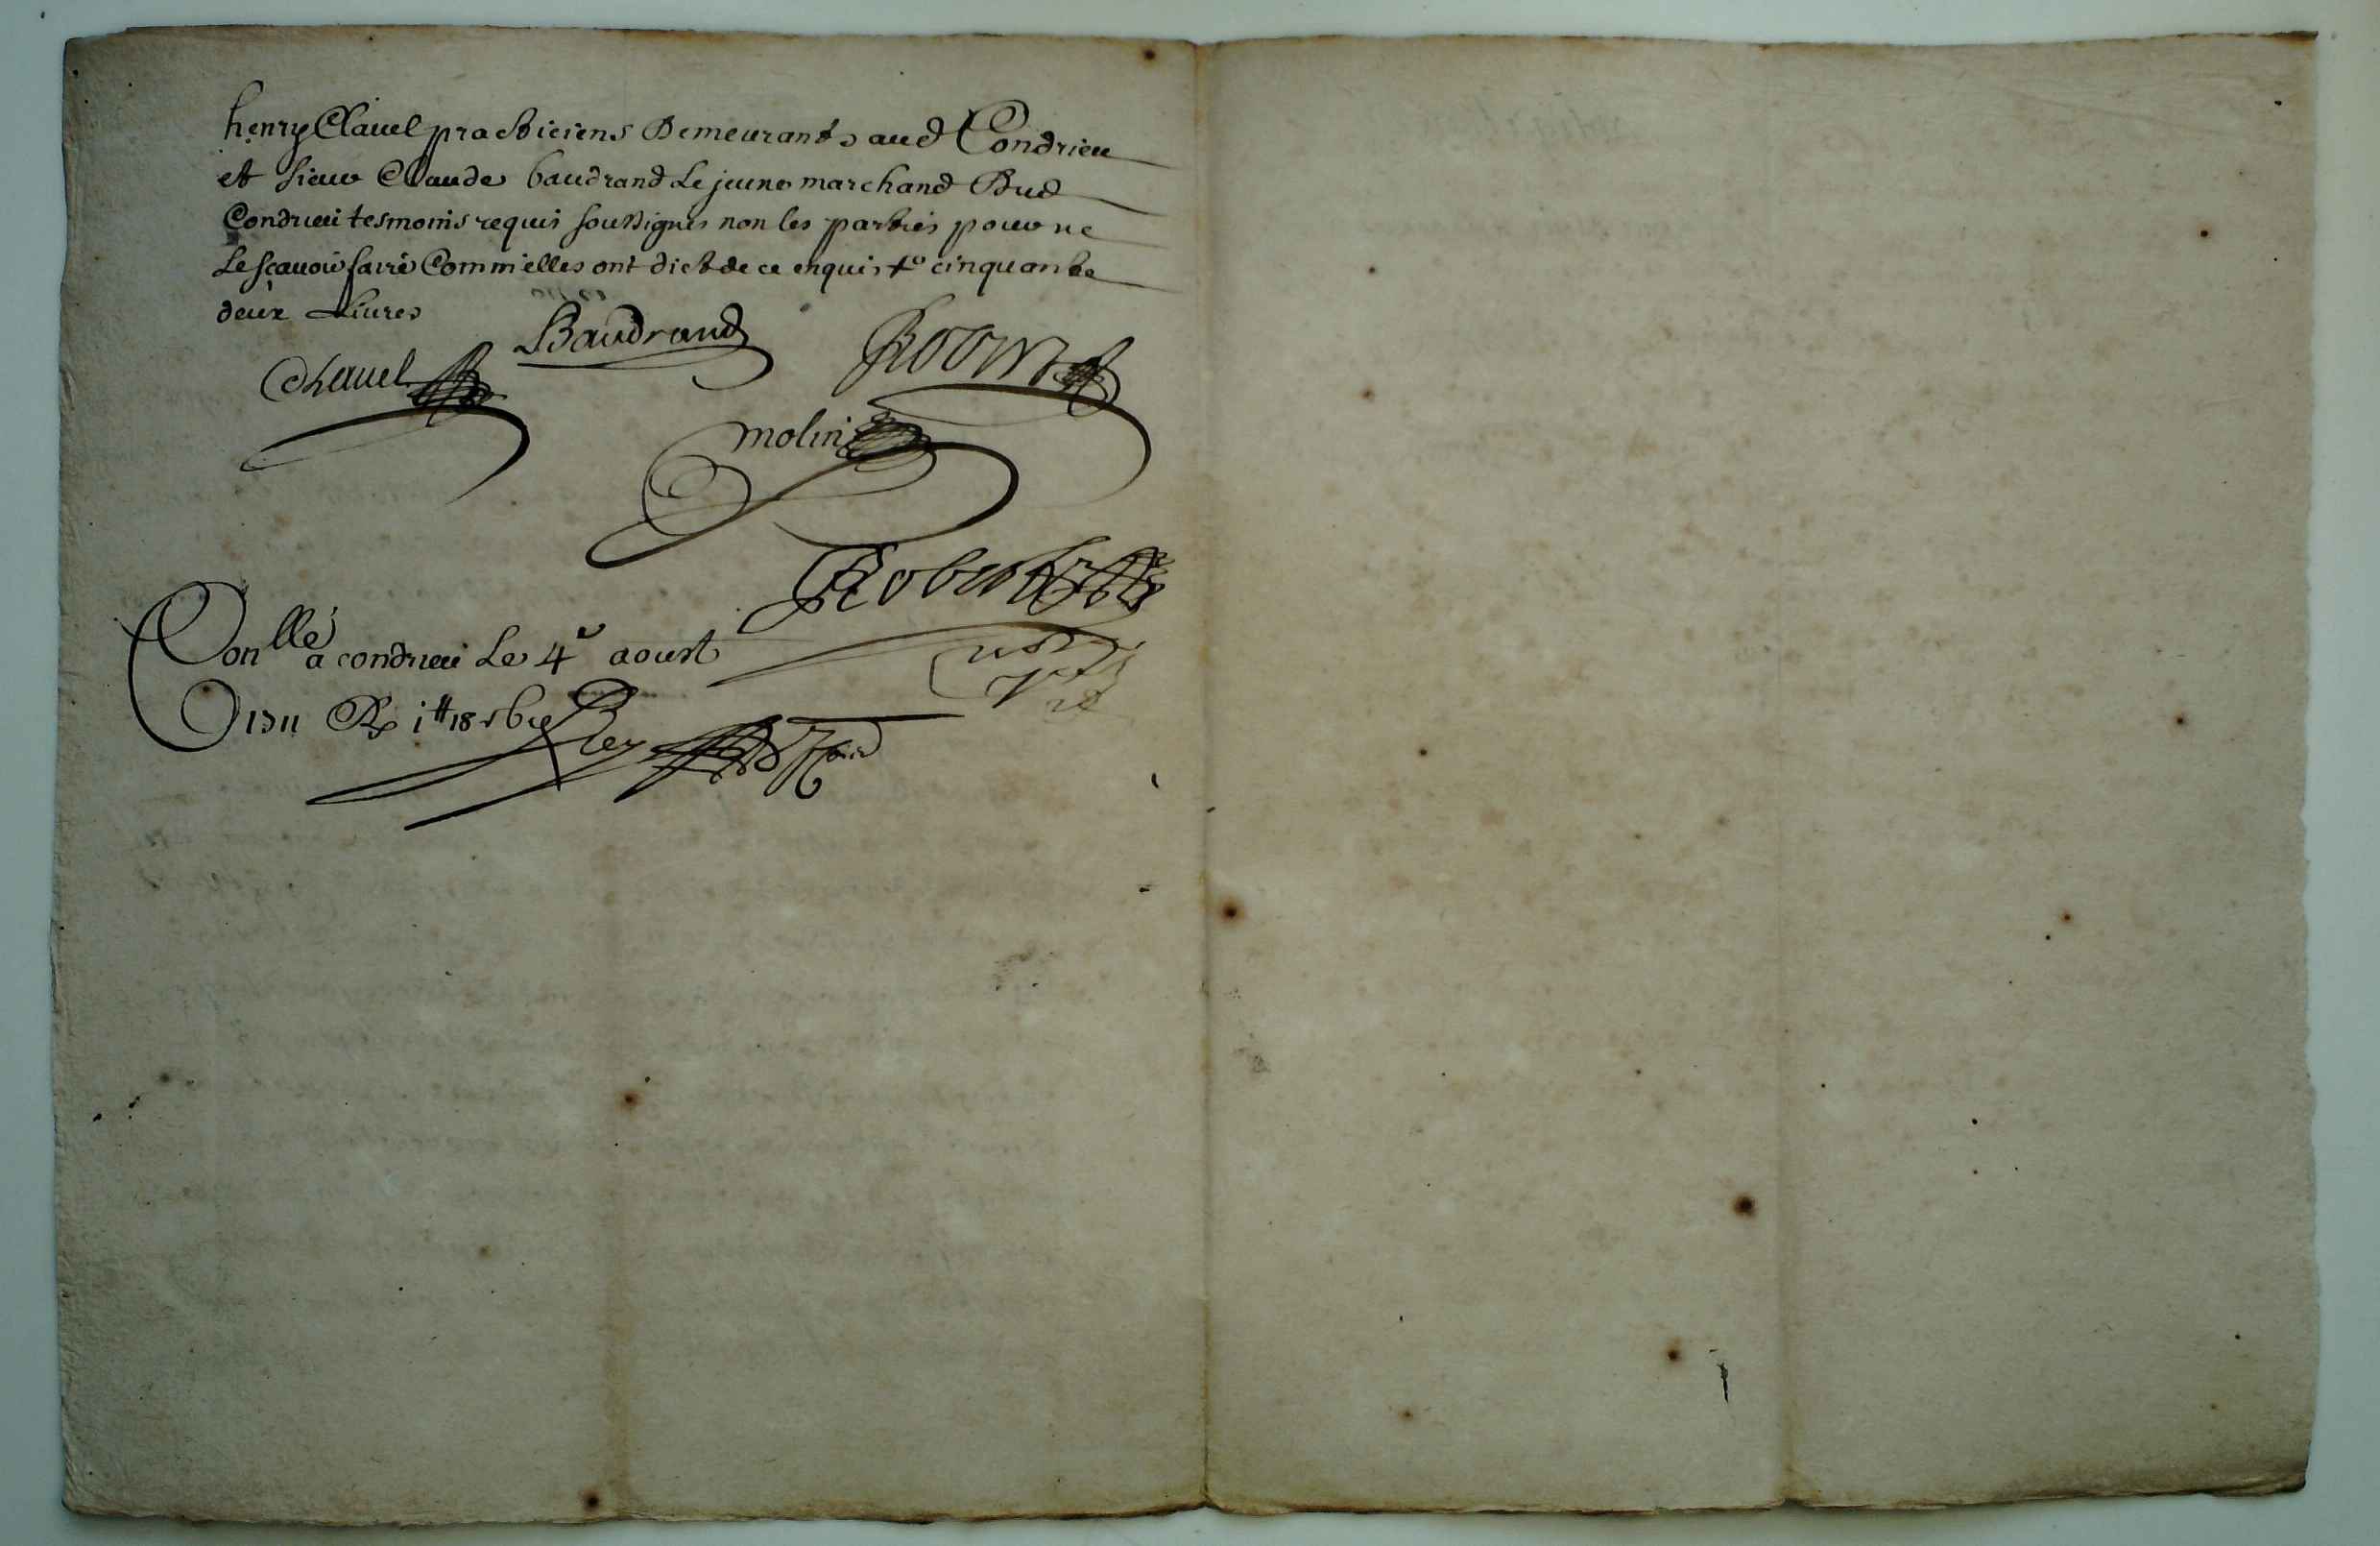 henry Clauel practiciens Demeurants aud Condrieu
et sieur Claude baudrand Le jeune marchand Dud
Condrieu tesmoins requis soussignés non les parties pour ne
Le sçauoir faire Comm'elles ont dict de ce enquis cinquante
deux Liures
Baudrand
Clauel
molin
Robert
Conllé a condrieu Le 4e aoust
1711 R 1# 18 s
Rey